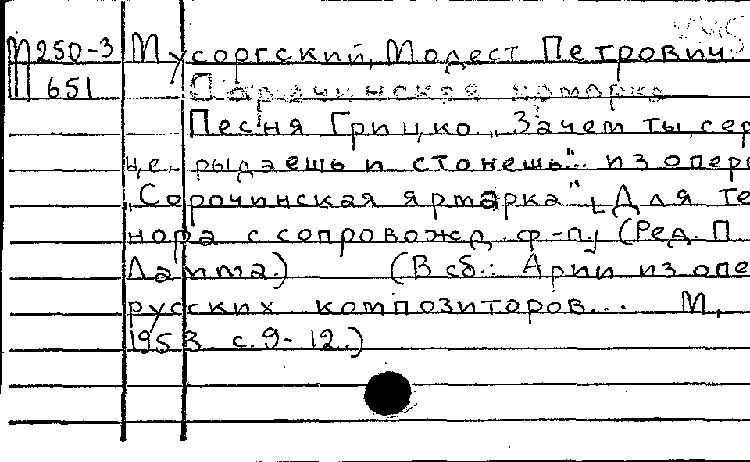 М250-3 Мусоргский, Модест Петрович.
651 Сорочинская ярмарка
Песня Грицко „Зачем ты, сер
це, рыдаешь и стонешь"... из опер
„Сорочинская ярмарка", [Для те
нора с сопровожд. ф-п.] (Ред. П.
Ламма.) (В сб.: Арии из опе
русских композиторов... М.,
1953 с. 9-12.)